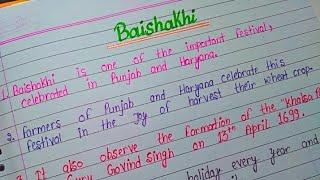 Baishakhi
1. Baishakhi is one of the important festival,
celebrated in Punjab and Haryana.
2. Farmers of Punjab and Haryana celebrate this
festival in the Joy of harvest their wheat crop.
3. It also observe the formation of the "Khalsa
Guru Govind Singh on 13th April 1699.
holiday every year and